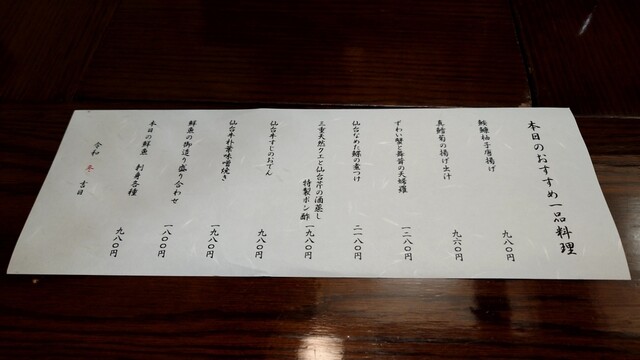 本日のおすすめ一品料理
鮟鱇柚子唐揚げ 九八〇円
真鱈菊の揚げ出汁 九六〇円
ずわい蟹と舞茸の天婦羅 一二八〇円
仙台なめた鰈の煮つけ 二一八〇円
三重天然クエと仙台芹の酒蒸し
特製ポン酢 一九八〇円
仙台牛すじのおでん 九八〇円
仙台牛朴葉味噌焼き 一九八〇円
鮮魚の御造り盛り合わせ 一八〇〇円
本日の鮮魚 刺身各種 九八〇円
令和 冬 吉日